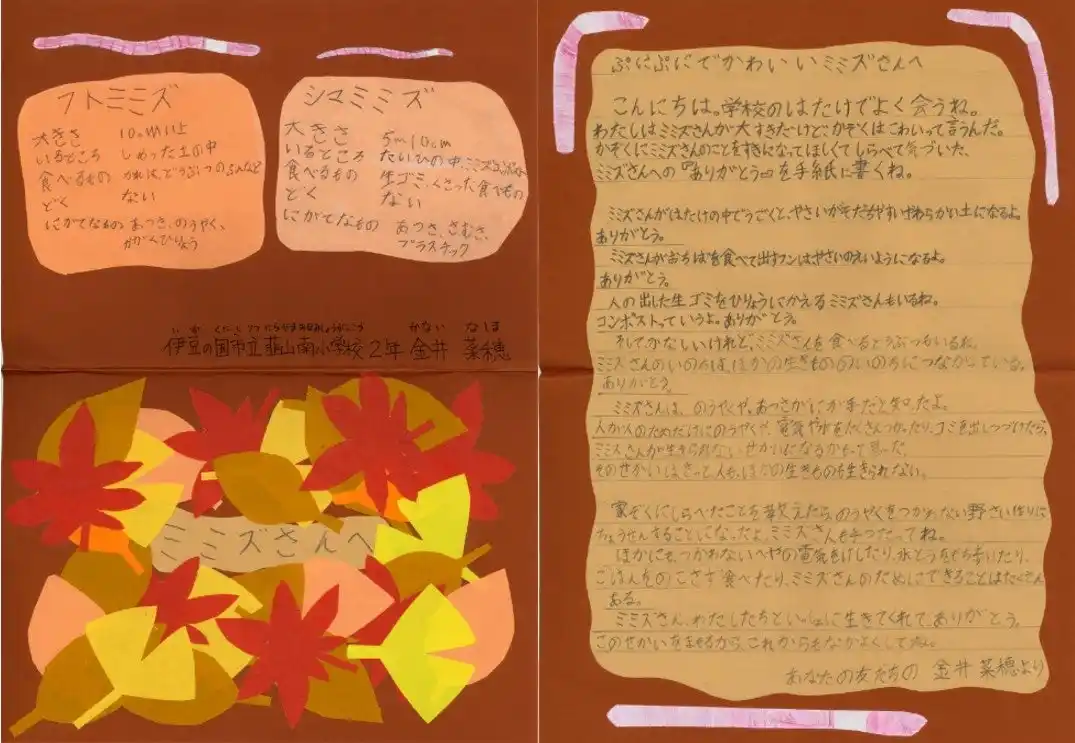 フトミミズ
大きさ 10cm以上
いるところ しめった土の中
食べるもの かれは、どうぶつのふんなど
どく ない
にがてなもの あつさ、のうやく、
かがくひりょう
シマミミズ
大きさ 5〜10cm
いるところ たいひの中、
食べるもの 生ゴミ、くさった食べもの
どく ない
にがてなもの あつさ、さむさ、
プラスチック
伊豆の国市立韮山南小学校2年 金井 菜穂
かない なほ
ミミズさんへ
ぷにぷにでかわいいミミズさんへ
こんにちは。学校のはたけでよく会うね。
わたしはミミズさんが大すきだけど、かぞくはこわいって言うんだ。
かぞくにミミズさんのことをすきになってほしくてしらべて気づいた、
ミミズさんへの『ありがとう』を手紙に書くね。
ミミズさんがはたけの中でうごくと、やさいがそだちやすいやわらかい土になるよ。
ありがとう。
ミミズさんがおちばを食べて出すフンはやさいのえいようになるよ。
ありがとう。
人の出した生ゴミをひりょうにかえるミミズさんもいるね。
コンポストっていうよ。ありがとう。
そしてかなしいけれど、ミミズさんを食べるどうぶつもいるね。
ミミズさんのいのちは、ほかの生きもののいのちにつながっている。
ありがとう。
ミミズさんは、のうやくや、あつさがにが手だと知ったよ。
人が人のためだけにのうやくや、電気や水をたくさんつかったり、ゴミを出しつづけたら、
ミミズさんが生きられないせかいになるかもって思った。
そのせかいはきっと、人も、ほかの生きものも生きられない。
家ぞくにしらべたことを教えたら、のうやくをつかわない野さい作りに
ちょうせんすることになったよ。ミミズさんも手つだってね。
ほかにも、つかわないへやの電気をけしたり、水とうをもち歩いたり、
ごはんをのこさず食べたり、ミミズさんのためにできることはたくさん
ある。
ミミズさん、わたしたちといっしょに生きてくれて、ありがとう。
このせかいをまもるから、これからもなかよくしてね。
あなたの友だちの 金井菜穂より